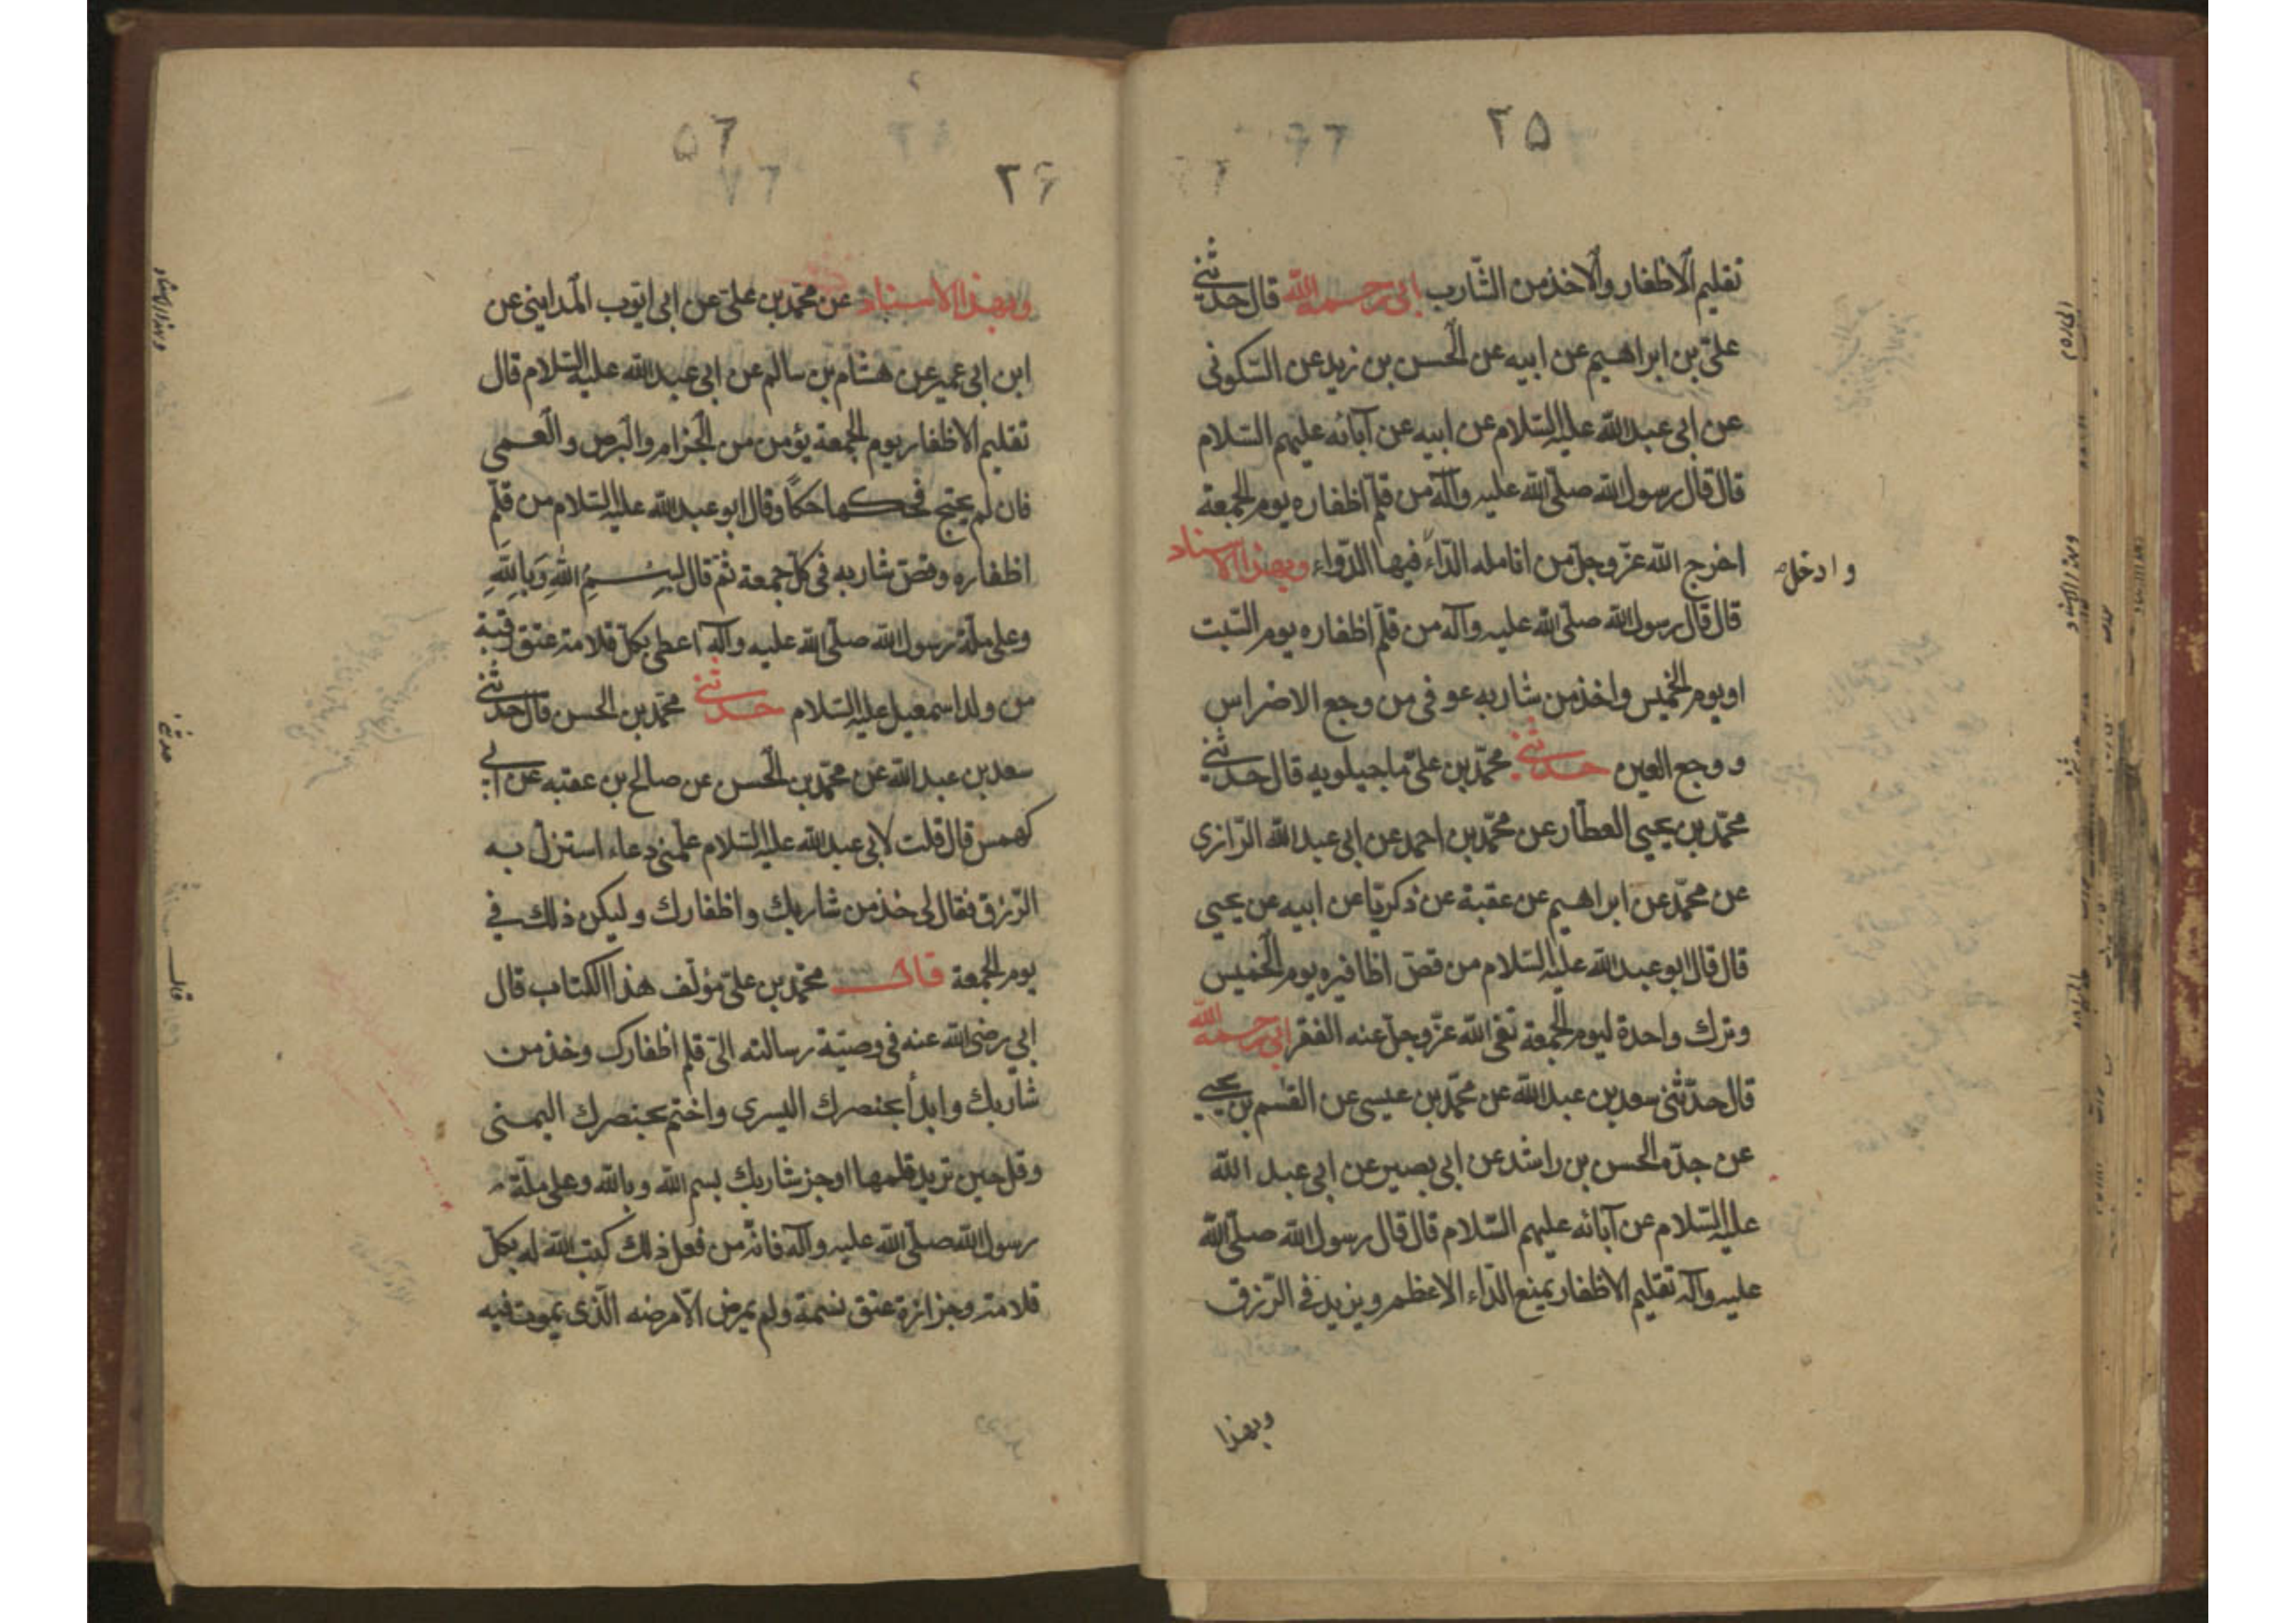 ٢٥
تقليم الاظفار والاخذ من الشّارب ابى رحمه الله قال حدثنى
علىّ بن ابراهيم عن ابيه عن الحسن بن زيد عن السّكونى
عن ابى عبد الله عليه السّلام عن ابيه عن آبائه عليهم السّلام
قال قال رسول الله صلّى الله عليه وآله من قلّم اظفاره يوم الجمعة
اخرج الله عزّ وجلّ من انامله الدّاء فيها الدّواء وبهذا الاسناد
وادخل
قال قال رسول الله صلّى الله عليه وآله من قلّم اظفاره يوم السّبت
او يوم الخميس واخذ من شاربه عوفى من وجع الاضراس
ووجع العين حدثنى محمّد بن علىّ ماجيلويه قال حدثنى
محمّد بن يحيى العطّار عن محمّد بن احمد عن ابى عبد الله الرّازى
عن محمّد عن ابراهيم عن عقبة عن ذكريّا عن ابيه عن يحيى
قال قال ابو عبد الله عليه السّلام من قصّ اظافيره يوم الخميس
وترك واحدة ليوم الجمعة نفى الله عزّ وجلّ عنه الفقر ابى رحمه الله
قال حدّثنى سعد بن عبد الله عن محمّد بن عيسى عن القسم بن يحيى
عن جدّه الحسن بن راشد عن ابى بصير عن ابى عبد الله
عليه السّلام عن آبائه عليهم السّلام قال قال رسول الله صلّى الله
عليه وآله تقليم الاظفار يمنع الدّاء الاعظم ويزيد فى الرّزق
وبهذا
٥٦
٢۶
وبهذا الاسناد عن محمّد بن علىّ عن ابى ايّوب المداينى عن
ابن ابى عمير عن هشام بن سالم عن ابى عبد الله عليه السّلام قال
تقليم الاظفار يوم الجمعة يؤمن من الجذام والبرص والعمى
فان لم يحتج فحكها حكّا وقال ابو عبد الله عليه السّلام من قلّم
اظفاره وقصّ شاربه فى كلّ جمعة ثم قال بِسْمِ اللهِ وَبِاللهِ
وعلى ملّة رسول الله صلّى الله عليه وآله اعطى بكلّ قلامة عتق رقبة
من ولد اسمعيل عليه السّلام حدثنى محمّد بن الحسن قال حدثنى
سعد بن عبد الله عن محمّد بن الحسن عن صالح بن عقبه عن ابى
كهمس قال قلت لابى عبد الله عليه السّلام علّمنى دعاء استنزل به
الرّزق فقال لى خذ من شاربك واظفارك وليكن ذلك فى
يوم الجمعة قال محمّد بن علىّ مؤلّف هذا الكتاب قال
ابى رضى الله عنه فى وصيّة رسالته الىّ قلم اظفارك وخذ من
شاربك وابدأ بخنصرك اليسرى واختم بخنصرك اليمنى
وقل حين تريد قلمها او جز شاربك بسم الله وبالله وعلى ملّة
رسول الله صلّى الله عليه وآله فانّه من فعل ذلك كتب الله له بكلّ
قلامة وجزازة عتق نسمة ولم يمرض الّا مرضه الّذى يموت فيه